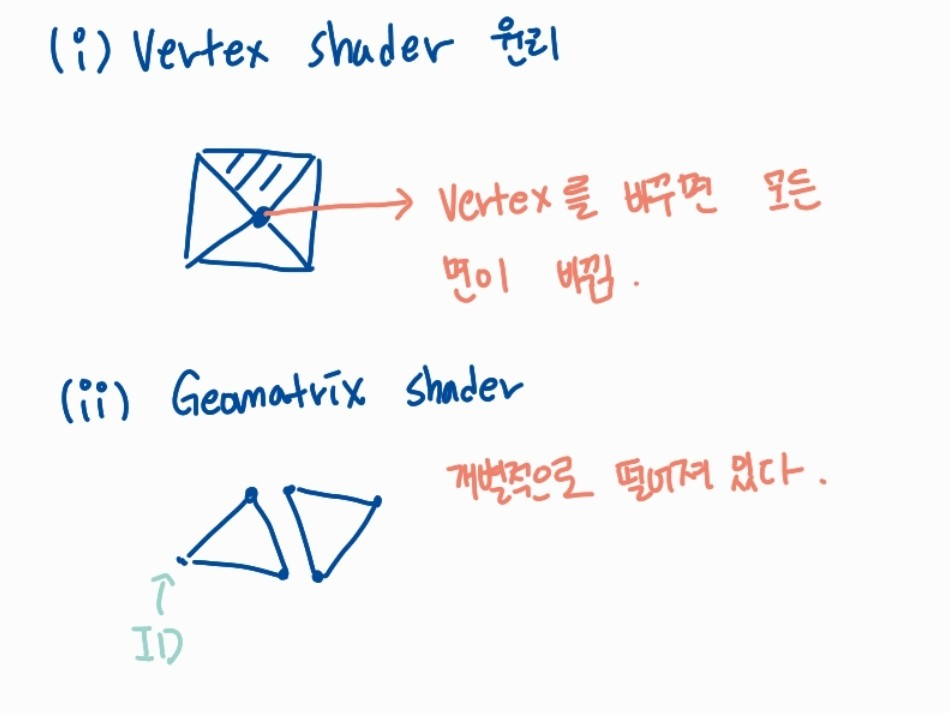 (i) Vertex shader 원리
Vertex를 바꾸면 모든
면이 바뀜.
(ii) Geomatrix shader
개별적으로 떨어져 있다.
ID